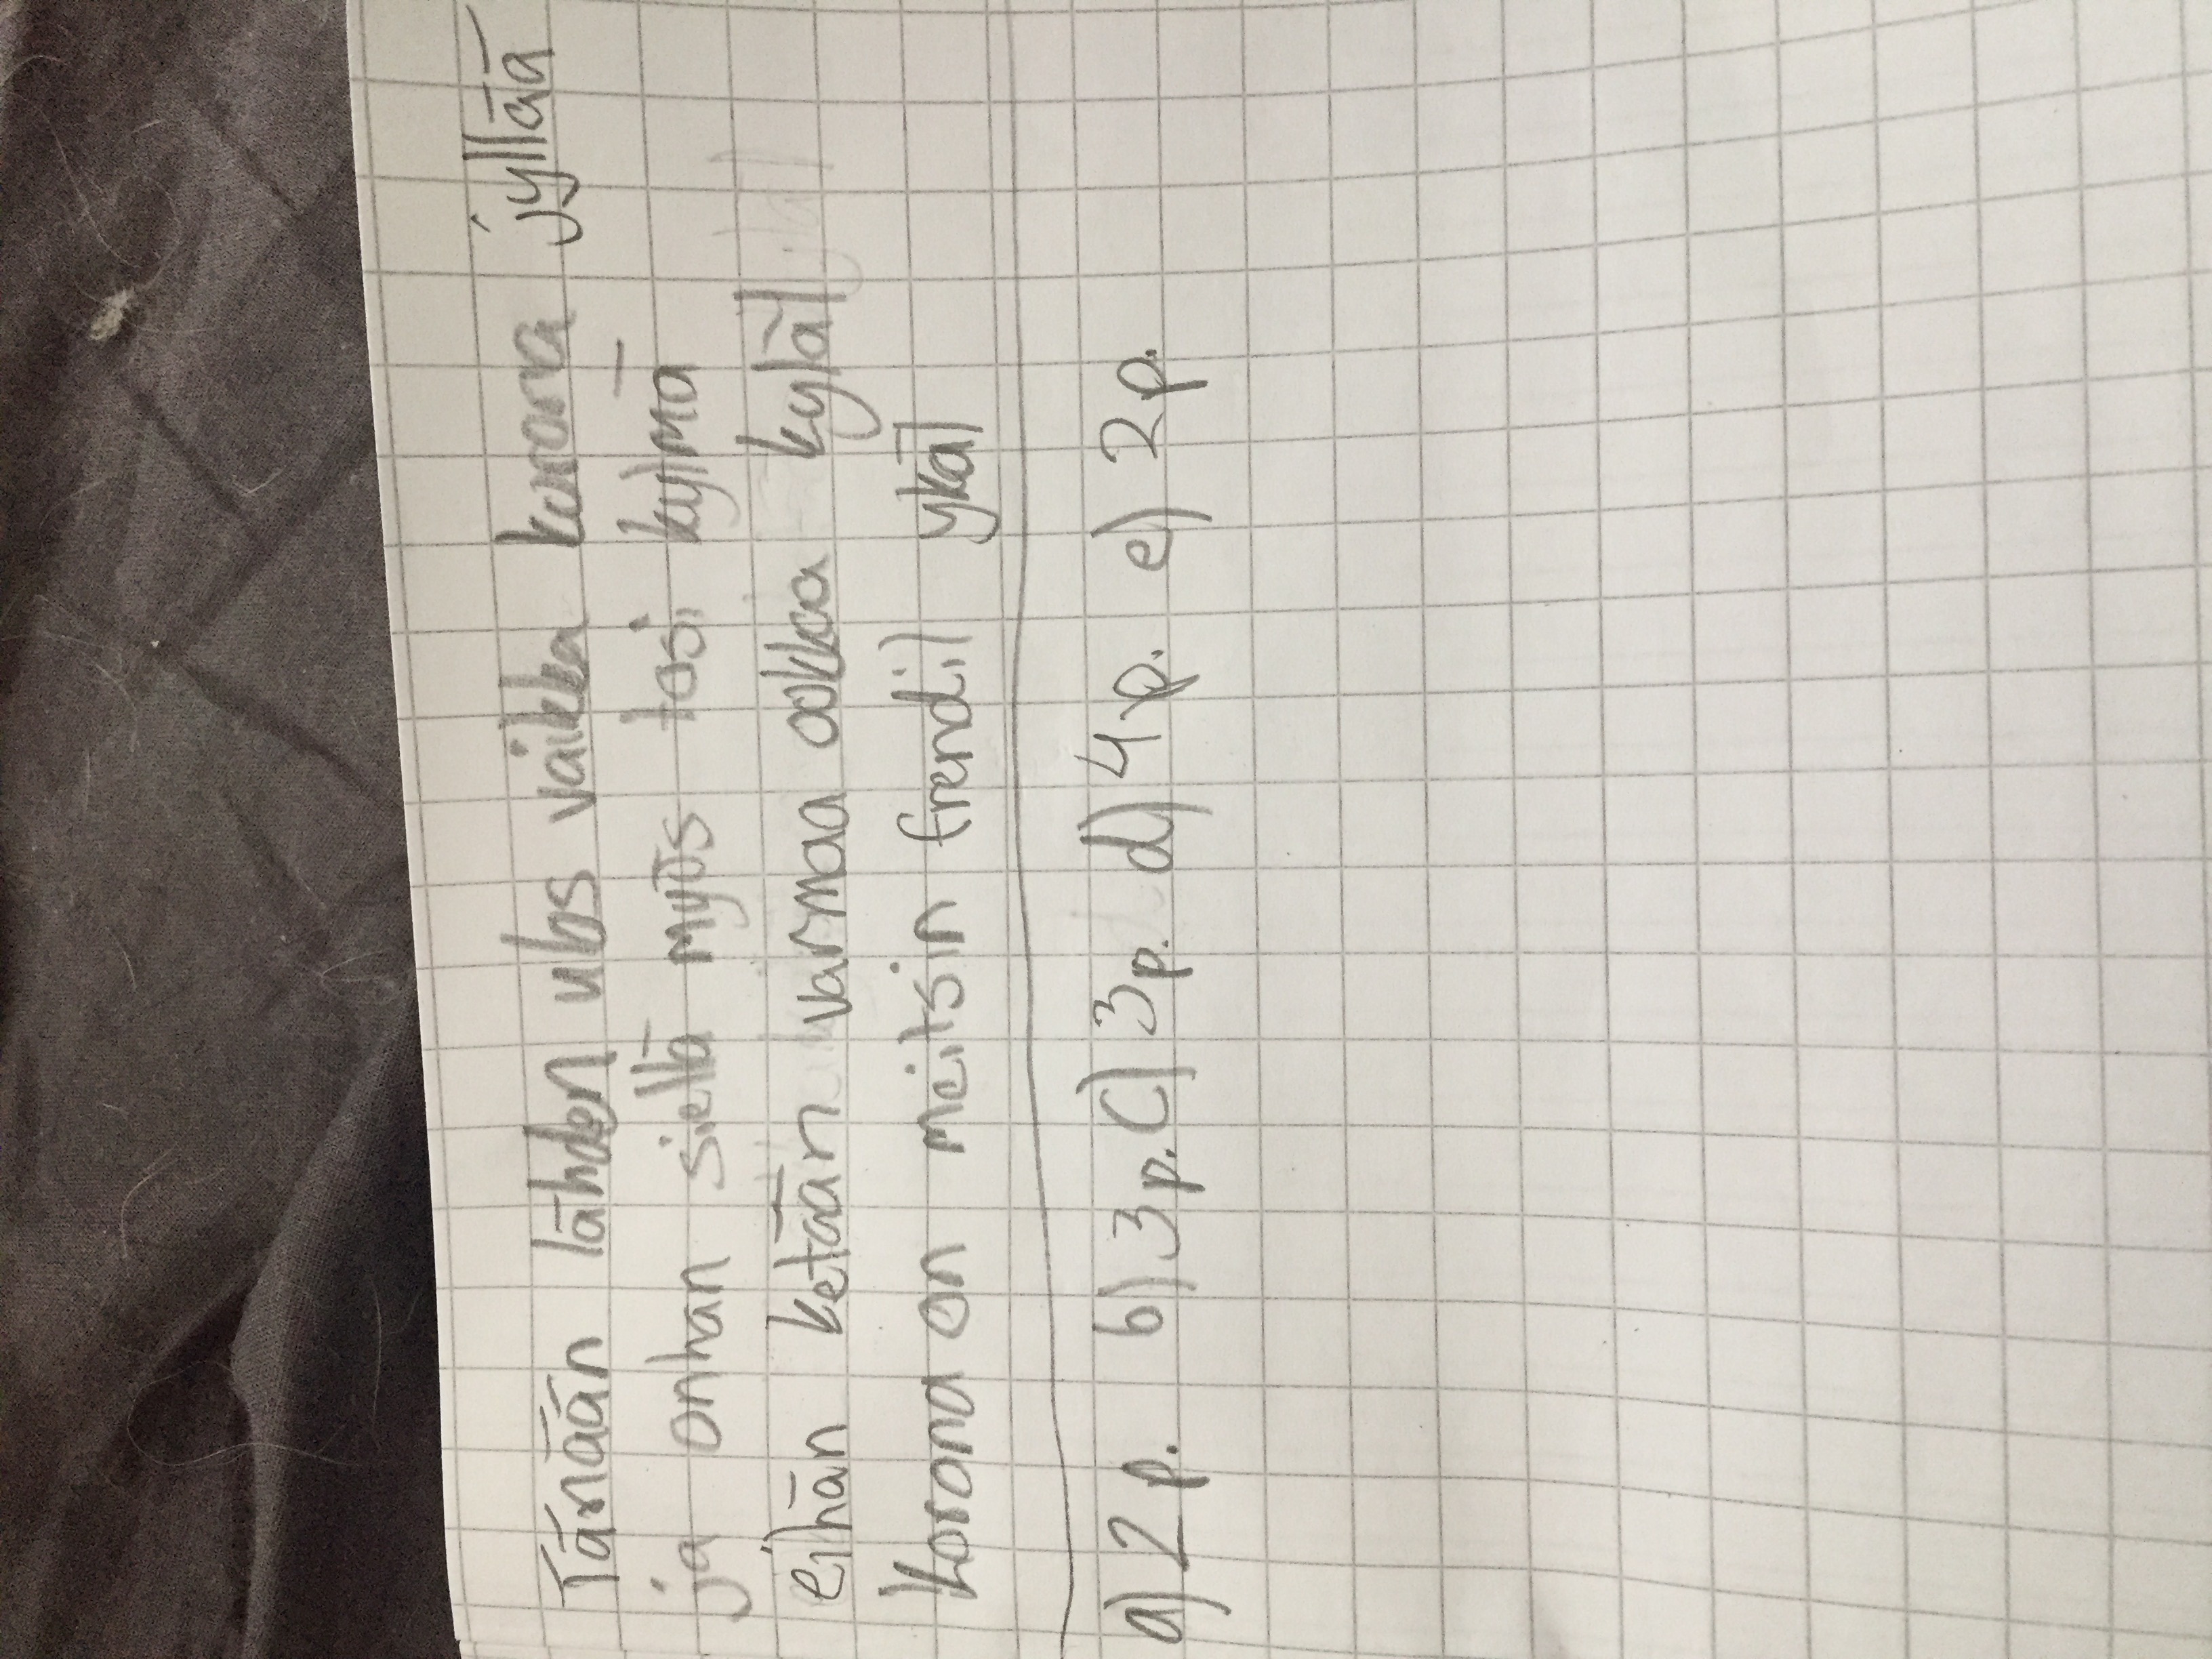 Tänään lähden ulos vaikka korona jyllää
ja onhan siellä myös tosi kylmä
eihän ketään varmaa ookkaa kyläl
Korona on meitsin frendil ykäl
a) 2 p. b) 3 p. c) 3 p. d) 4 p. e) 2 p.